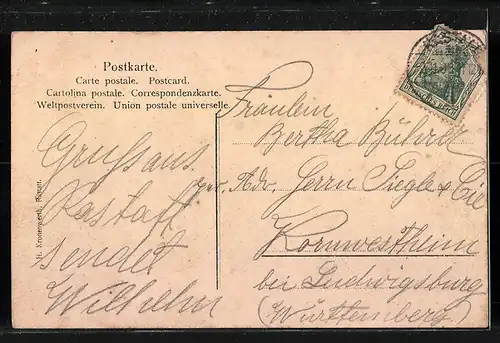 Postkarte.
Carte postale. Postcard.
Cartolina postale. Correspondenzkarte.
Weltpostverein. Union postale universelle.
Gruss aus
Rastatt
sendet
Wilhelm
Fräulein
Bertha Bührer
pr. Adr. Herrn Siegle & Cie
Kornwestheim
bei Ludwigsburg
(Württemberg)
H. Kronenwerth,
DEUTSCHES REICH